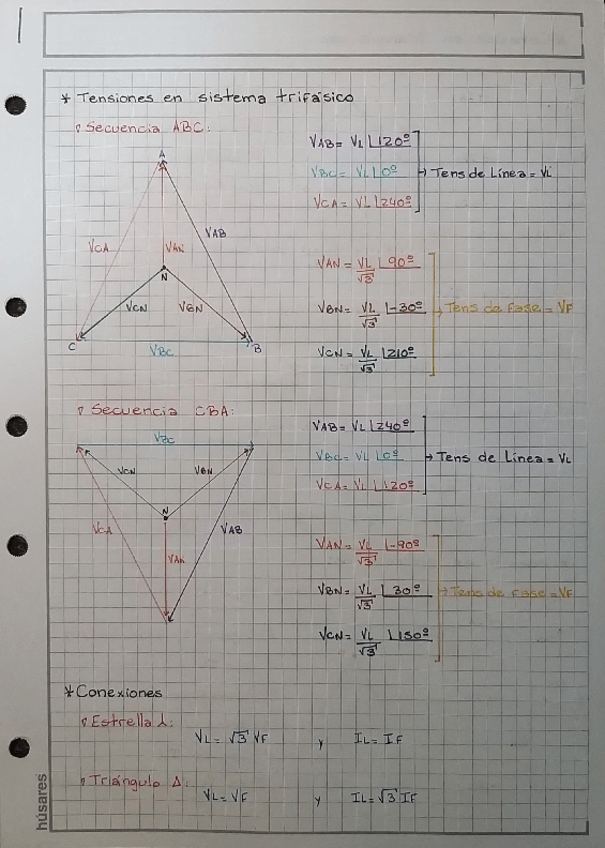 * Tensiones en sistema trifásico
Secuencia ABC:
A
VCA
VAN
VAB
N
VCN
VBN
C
VBC
B
VAB = VL ∠120º
VBC = VL ∠0º
VCA = VL ∠240º
→ Tens de Línea = VL
VAN = VL/√3 ∠90º
VBN = VL/√3 ∠-30º
VCN = VL/√3 ∠210º
→ Tens de Fase = VF
Secuencia CBA:
VBC
VCN
VBN
N
VCA
VAN
VAB
VAB = VL ∠240º
VBC = VL ∠0º
VCA = VL ∠120º
→ Tens de Línea = VL
VAN = VL/√3 ∠-90º
VBN = VL/√3 ∠30º
VCN = VL/√3 ∠150º
→ Tens de Fase = VF
* Conexiones
Estrella ⅄:
VL = √3 VF y IL = IF
Triángulo Δ:
VL = VF y IL = √3 IF
húsares